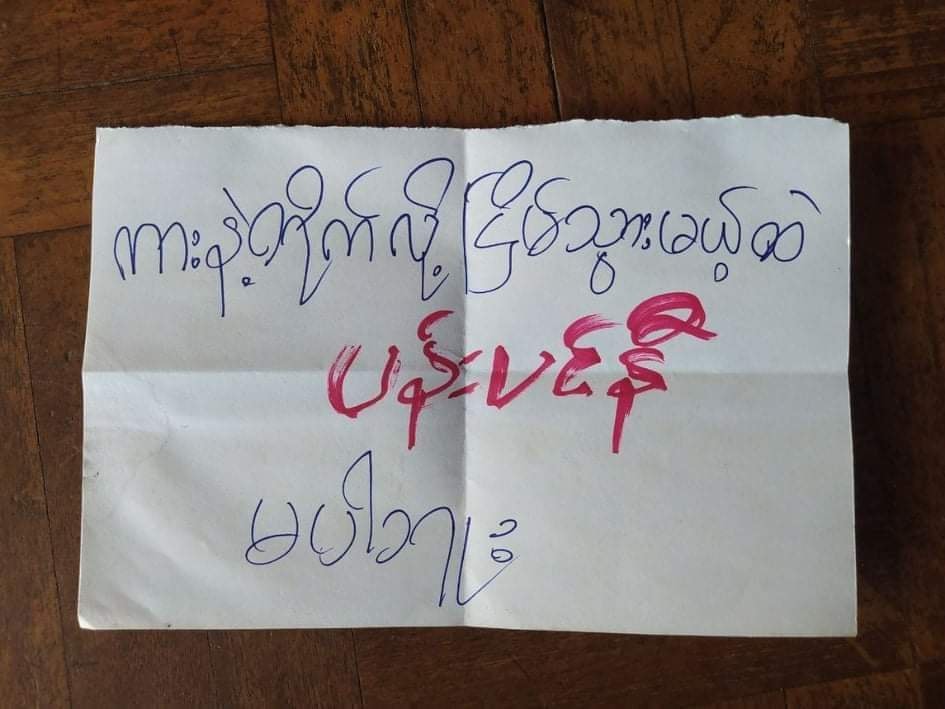 ကားနဲ့တိုက်လို့ ငြိမ်သွားမယ့်ထဲ
ပန်းပင်နီ
မပါဘူး